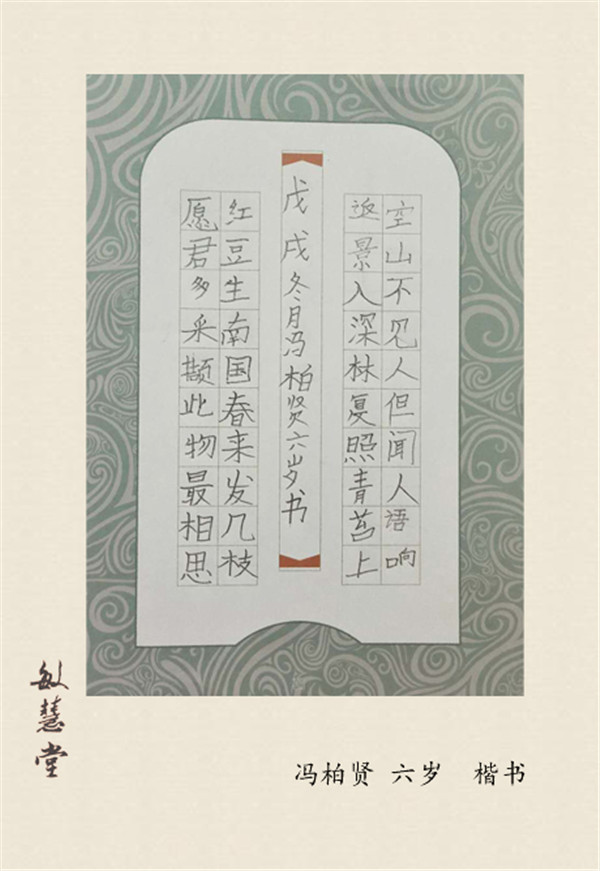 空山不见人但闻人语响
返景入深林复照青苔上
戊戌冬月冯柏贤六岁书
红豆生南国春来发几枝
愿君多采撷此物最相思
敏慧堂
冯柏贤 六岁 楷书